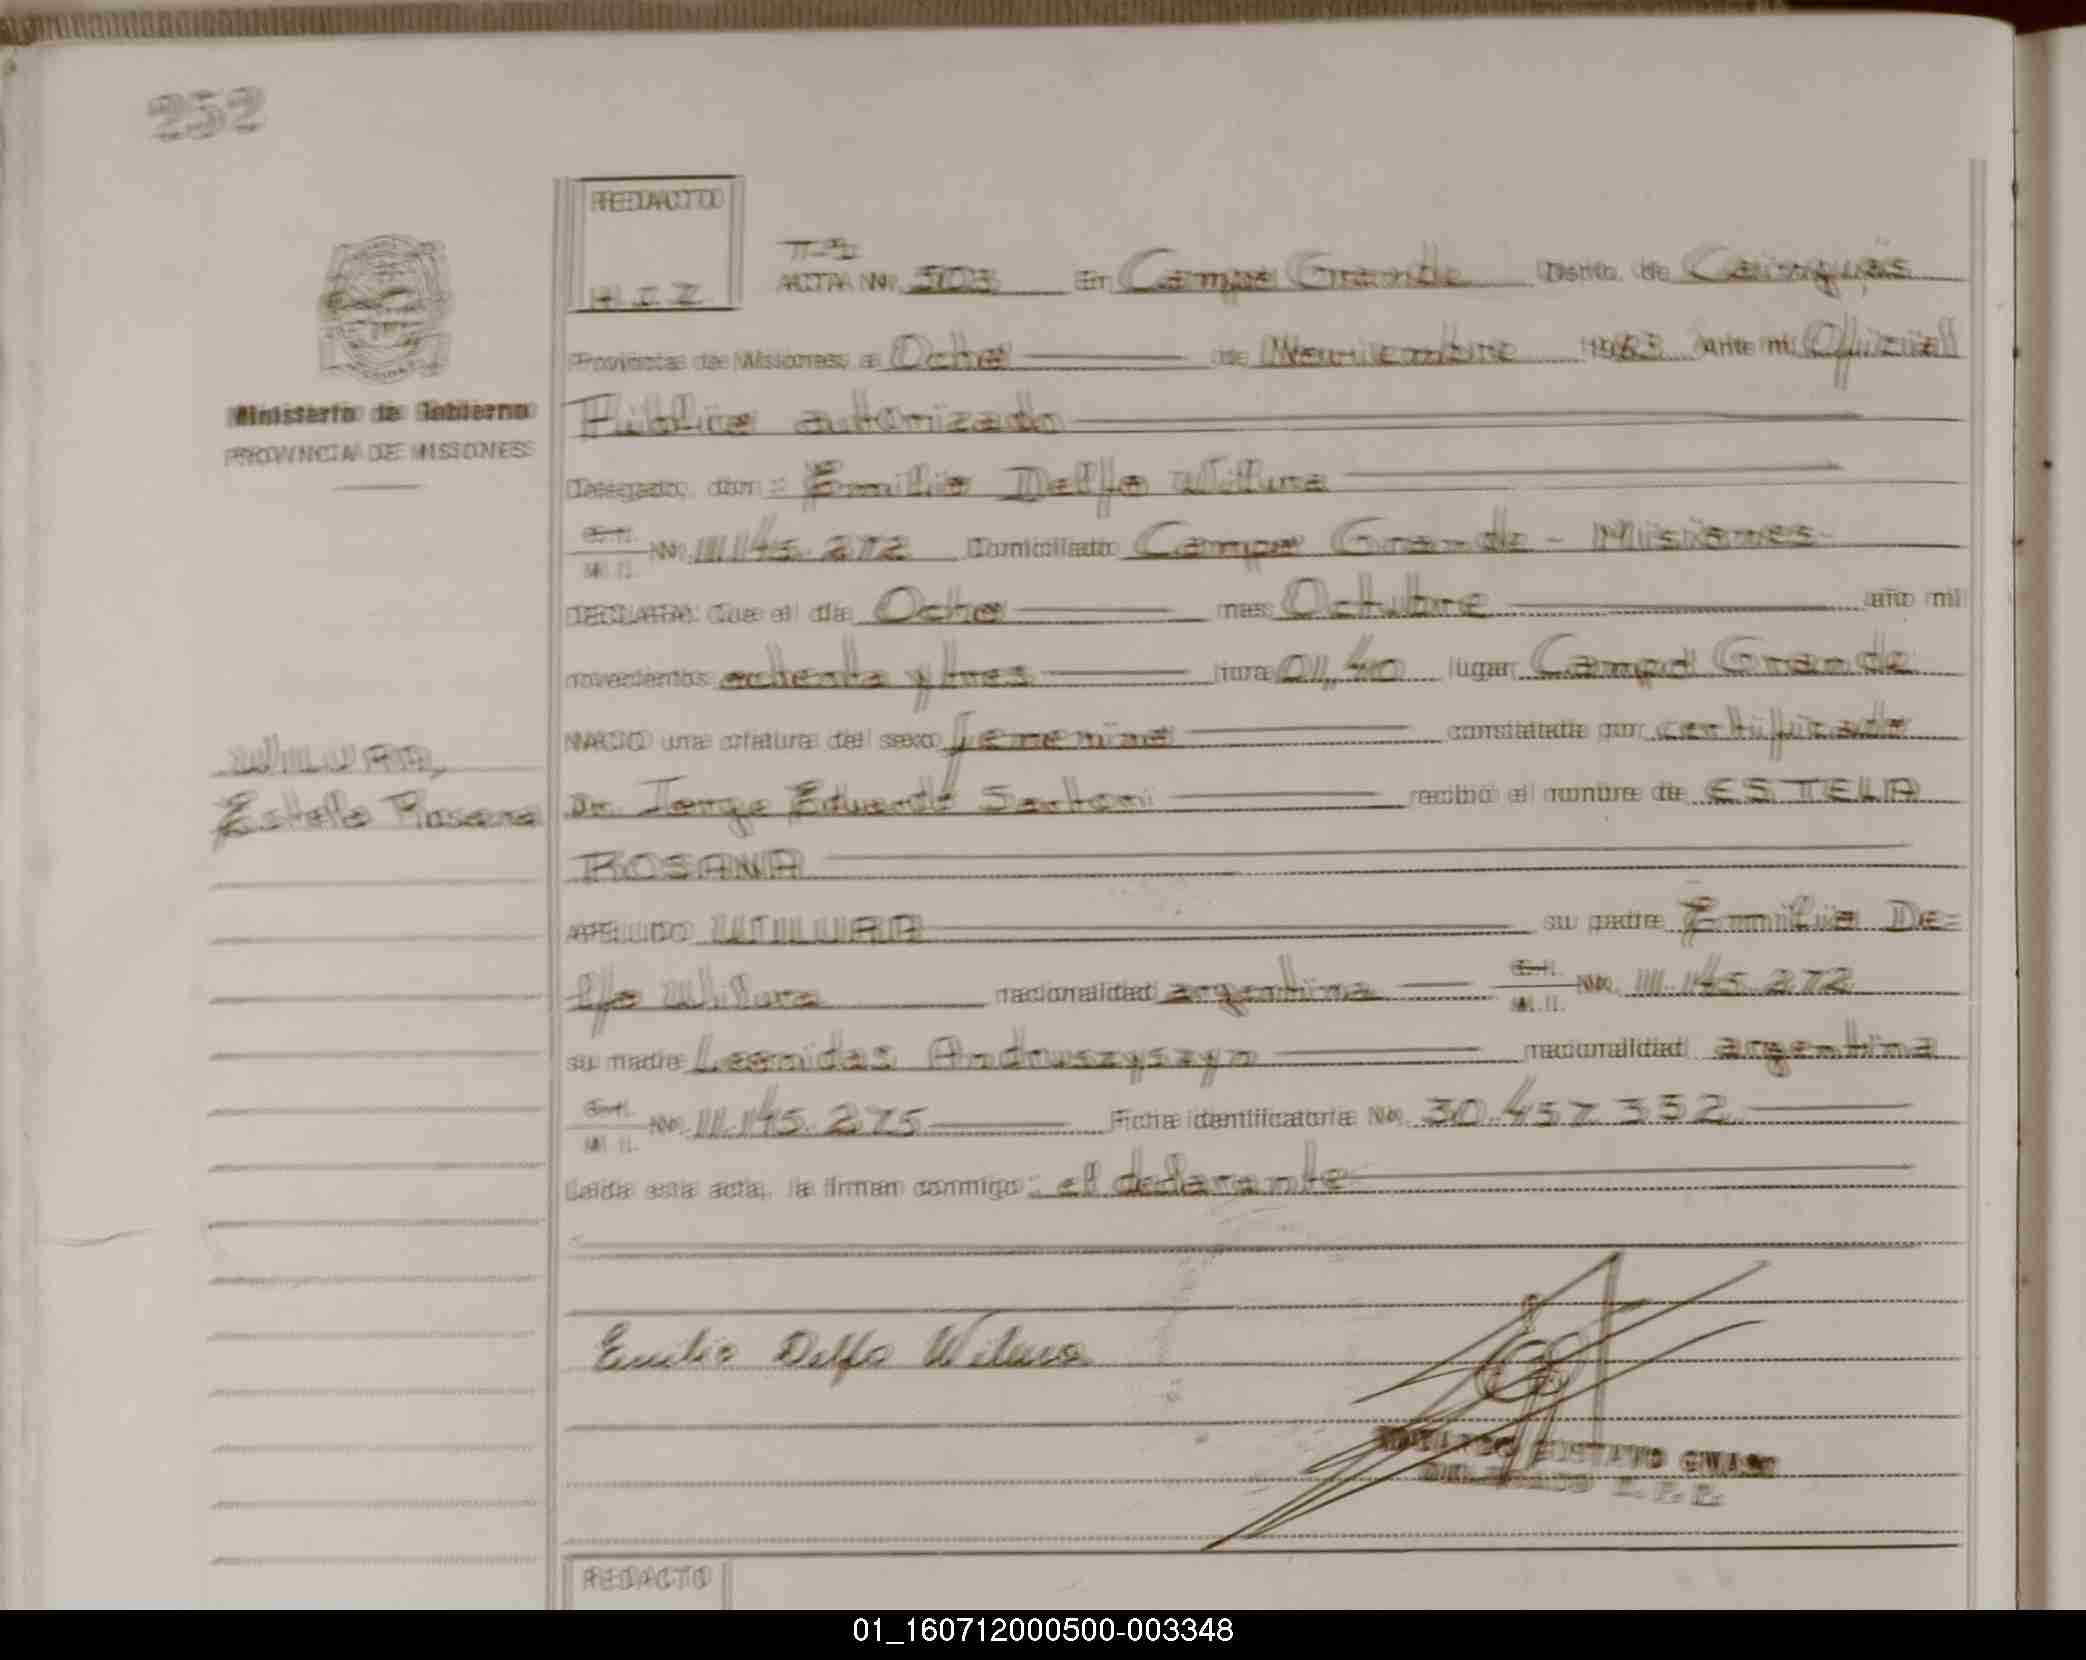 252
REDACTO
H.I.Z
Tº 2
ACTA No. 503 En Campo Grande Distrito de Cainguás
Provincia de Misiones a Ocho de Noviembre 1983 ante mí Oficial
Público autorizado
Ministerio de Gobierno
PROVINCIA DE MISIONES
Emilio Delfo Wilura
M.I. No. 11.145.272 Domiciliado Campo Grande - Misiones
DECLARA: Que el día Ocho mes Octubre año mil
novecientos ochenta y tres hora 01,40 lugar Campo Grande
NACIO una criatura del sexo femenino constatada por certificado
WILURA,
Estela Rosana
Dr. Jorge Eduardo Sartori recibió el nombre de ESTELA
ROSANA
APELLIDO WILURA su padre Emilio De=
lfo Wilura nacionalidad argentina M.I. No. 11.145.272
su madre Leonidas Andruszyszyn nacionalidad argentina
M.I. No. 11.145.275 Ficha identificatoria No. 30.457.352
Leída esta acta, la firman conmigo: el declarante
Emilio Delfo Wilura
GUSTAVO
REDACTO
01_160712000500-003348